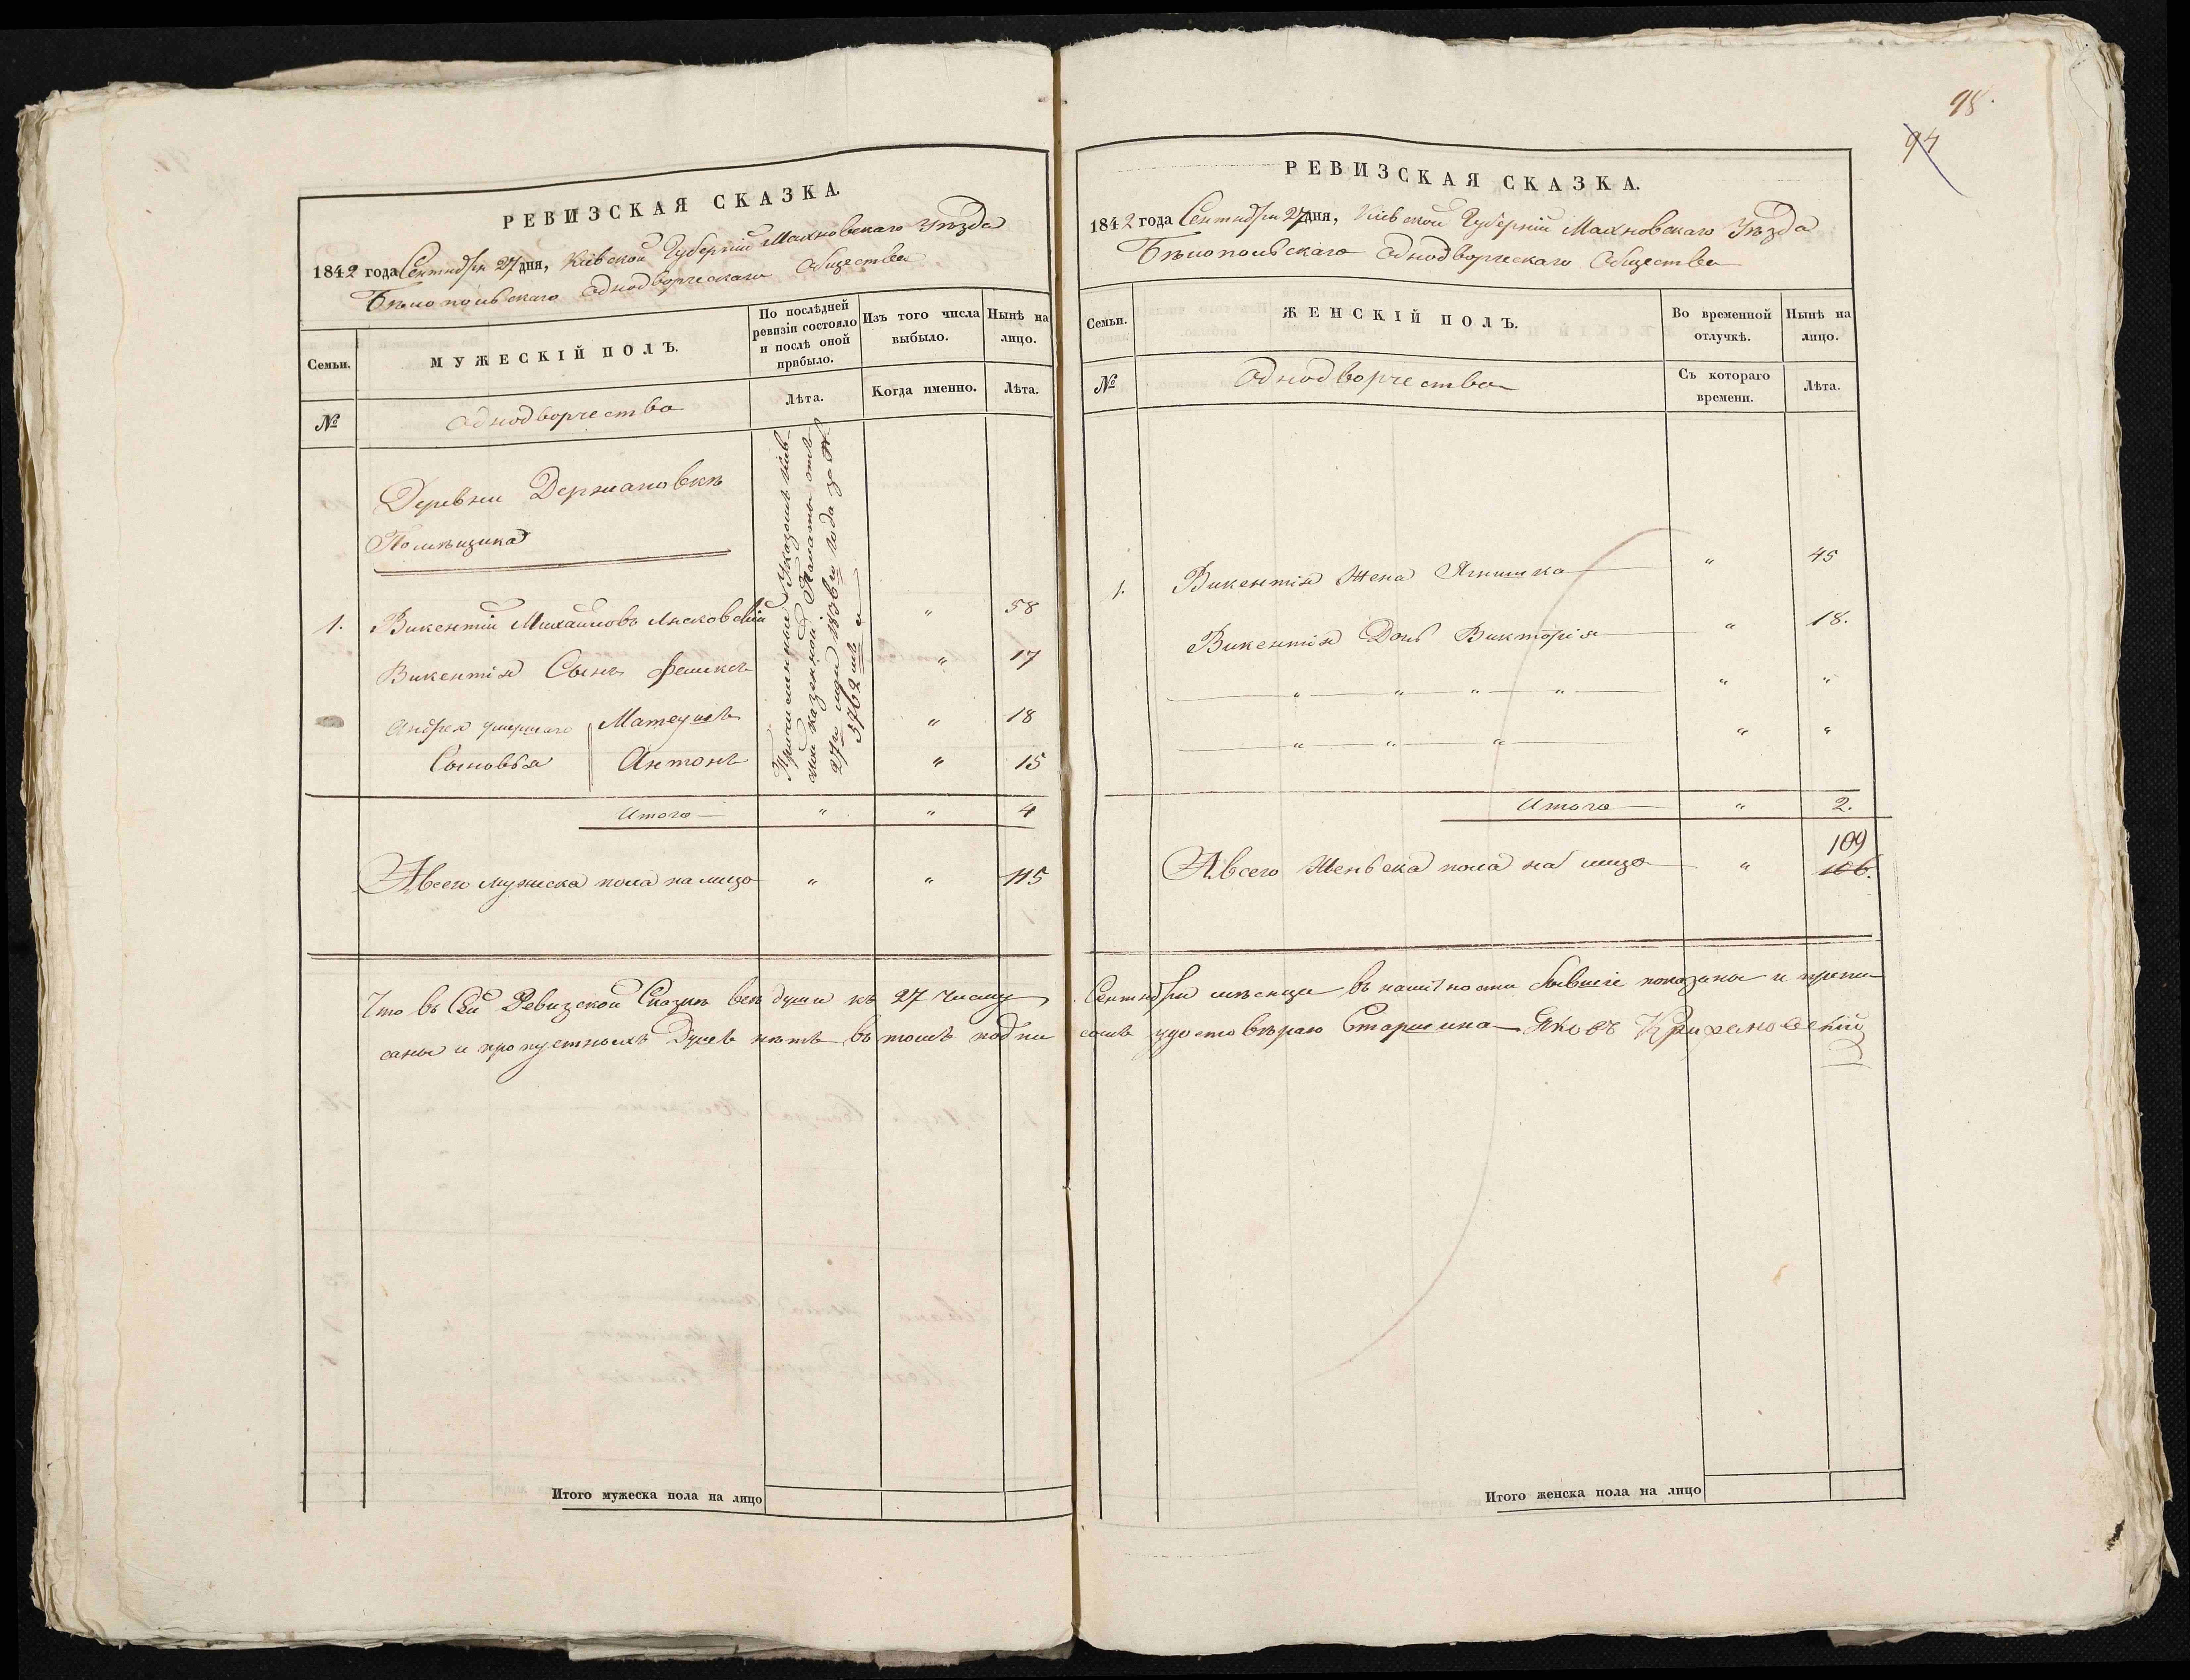 РЕВИЗСКАЯ СКАЗКА.
1842 года Сентября 27 дня, Кіевской Губерніи Махновскаго Уѣзда
Бѣлопольскаго Однодворческаго Общества
Семьи.
МУЖЕСКІЙ ПОЛЪ.
По послѣдней
ревизіи состояло
и послѣ оной
прибыло.
Изъ того числа
выбыло.
Нынѣ на
лицо.
№
Однодворчества
Лѣта.
Когда именно.
Лѣта.
Деревни Держановкѣ
Помѣщика
Причисленные Указомъ Кіев-
ской казенной Палаты отъ
27го 1836го года за №
5762мъ
1. Викентій Михайловъ Лясковскій " 58
Викентія Сынъ Феликсъ " 17
Андрея умершаго Матеушъ " 18
Сыновья Антонъ " 15
Итого " " 4
А всего мужеска пола на лицо " " 115
Что въ Сей Ревизской Сказкѣ всѣ души къ 27 Числу
саны и пропустныхъ Душъ нѣтъ въ томъ подпи
Итого мужеска пола на лицо
98.
94
РЕВИЗСКАЯ СКАЗКА.
1842 года Сентября 27 дня, Кіевской Губерніи Махновскаго Уѣзда
Бѣлопольскаго Однодворческаго Общества
Семьи.
ЖЕНСКІЙ ПОЛЪ.
Во временной
отлучкѣ.
Нынѣ на
лицо.
№
Однодворчества
Съ котораго
времени.
Лѣта.
1. Викентія Жена Ягнишка " 45
Викентія Дочь Викторія " 18.
" " " " " "
" " " " "
Итого " 2.
109
А всего Женьска пола на лицо " 106.
Сентября мѣсяца въ наличности бывшіе показаны и прпи
сомъ удостовѣраю Старшина Яковъ
Итого женска пола на лицо